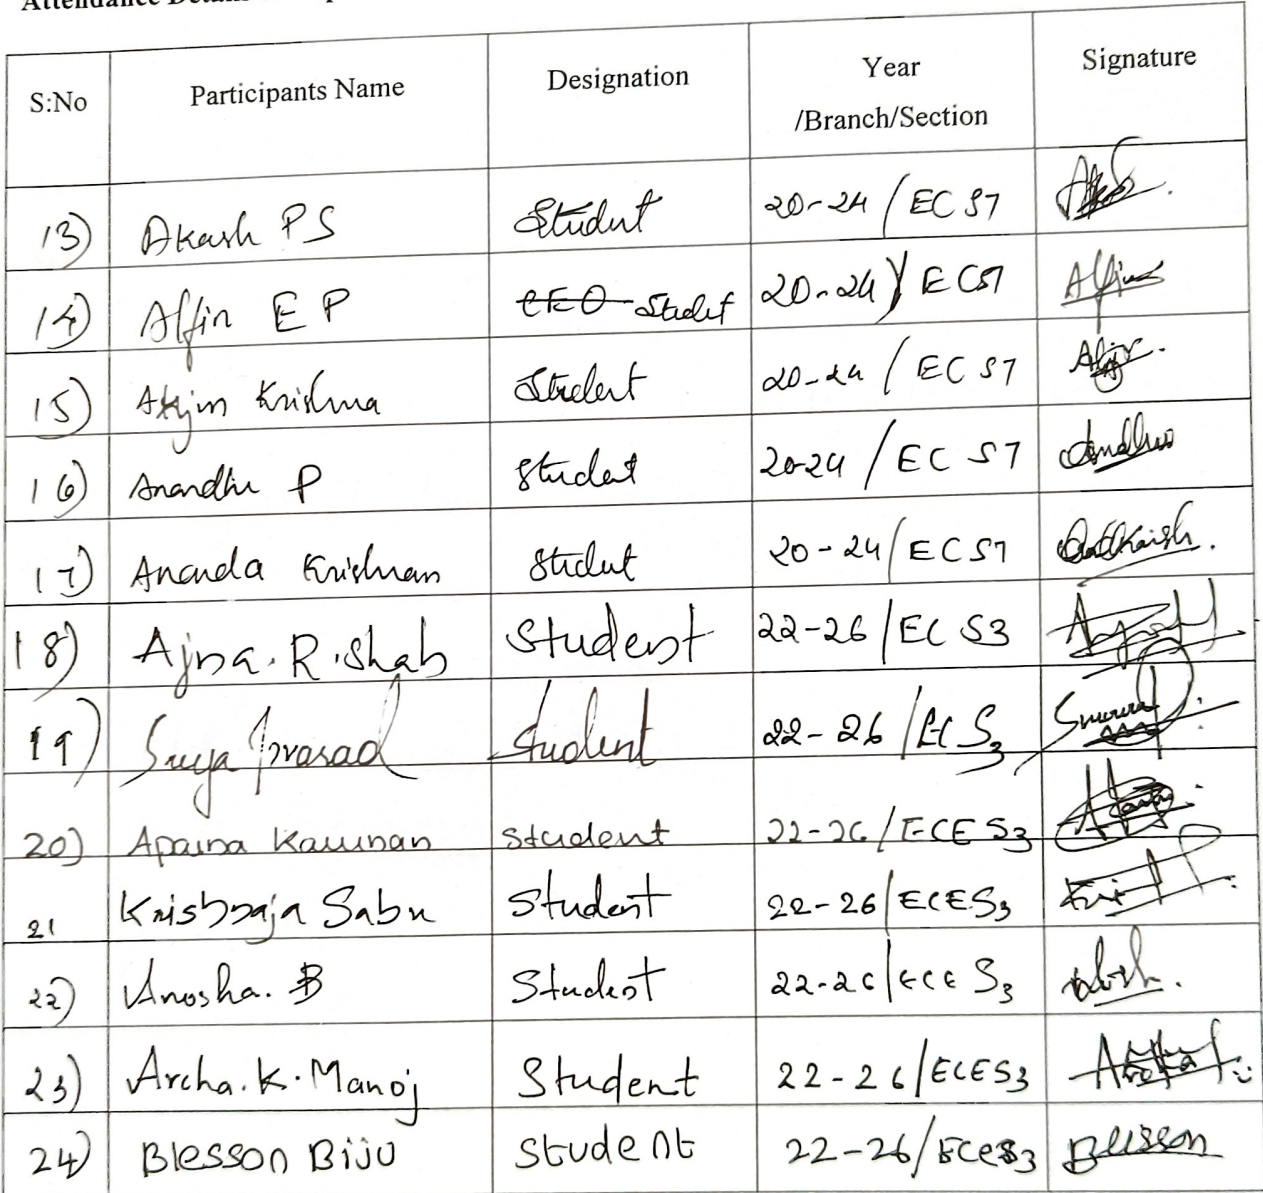 S:No Participants Name Designation Year /Branch/Section Signature
13) Akash PS Student 20-24 / EC S7
14) Alfin E P CEO Student 20-24 / EC S7 Alfin
15) Krishna Student 20-24 / EC S7
16) Anandhu P Student 20-24 / EC S7 Anandhu
17) Ananda Krishnan Student 20-24 / EC S7
18) Ajna. R. Shab Student 22-26 / EC S3
19) Surya Prasad Student 22-26 / EC S3
20) Aparna Kannan Student 22-26 / ECE S3
21 Krishnaja Sabu Student 22-26 / ECE S3
22) Anosha. B Student 22-26 / ECE S3
23) Archa. K. Manoj Student 22-26 / ECE S3
24) Blesson Biju Student 22-26 / ECE S3 Blesson